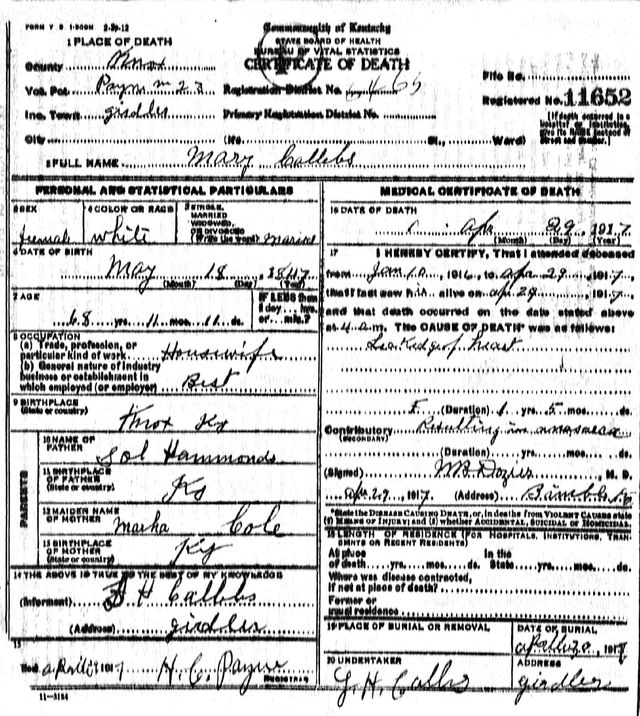 FORM V S 1-500M 2-29-12
Commonwealth of Kentucky
STATE BOARD OF HEALTH
BUREAU OF VITAL STATISTICS
CERTIFICATE OF DEATH
1 PLACE OF DEATH
County Knox
Vot. Pct. Payne 23 Registration District No.
Inc. Town girdler Primary Registration District No.
City (No. St., Ward)
File No.
Registered No. 11652
(If death occurred in a hospital or institution, give its NAME instead of street and number.)
2 FULL NAME Mary Callebs
PERSONAL AND STATISTICAL PARTICULARS
3 SEX female
4 COLOR OR RACE white
5 SINGLE, MARRIED, WIDOWED, OR DIVORCED (Write the word)
6 DATE OF BIRTH
May 18, 1847
(Month) (Day) (Year)
7 AGE
68 yrs. 11 mos. 11 ds.
IF LESS than 1 day... hrs. or... min.?
8 OCCUPATION
(a) Trade, profession, or particular kind of work Housewife
(b) General nature of industry business or establishment in which employed (or employer) Best
9 BIRTHPLACE (State or country)
Knox Ky
PARENTS
10 NAME OF FATHER
Sol Hammonds
11 BIRTHPLACE OF FATHER (State or country)
Ky
12 MAIDEN NAME OF MOTHER
Cole
13 BIRTHPLACE OF MOTHER (State or country)
Ky
14 THE ABOVE IS TRUE TO THE BEST OF MY KNOWLEDGE
(Informant) H Callebs
(Address) girdler
15
Filed 1917 H. C. Payne
REGISTRAR
11-3184
MEDICAL CERTIFICATE OF DEATH
16 DATE OF DEATH
Apr 29, 1917
(Month) (Day) (Year)
17 I HEREBY CERTIFY, That I attended deceased
from Jan 10, 1916, to Apr 29, 1917
that I last saw h alive on Apr 29, 1917
and that death occurred on the date stated above
at 4 a.m. The CAUSE OF DEATH* was as follows:
Leakedge of heart
(Duration) 1 yrs. 5 mos. ds.
Contributory Resulting in
(SECONDARY)
(Duration) yrs. mos. ds.
(Signed) Dozier, M. D.
Apr 29, 1917 (Address)
*State the DISEASE CAUSING DEATH, or, in deaths from VIOLENT CAUSES state (1) MEANS OF INJURY; and (2) whether ACCIDENTAL, SUICIDAL or HOMICIDAL.
18 LENGTH OF RESIDENCE (FOR HOSPITALS, INSTITUTIONS, TRANSIENTS OR RECENT RESIDENTS)
At place of death yrs. mos. ds. In the State yrs. mos. ds.
Where was disease contracted, if not at place of death?
Former or usual residence
19 PLACE OF BURIAL OR REMOVAL
DATE OF BURIAL
1917
20 UNDERTAKER
H. Callebs
ADDRESS
girdler